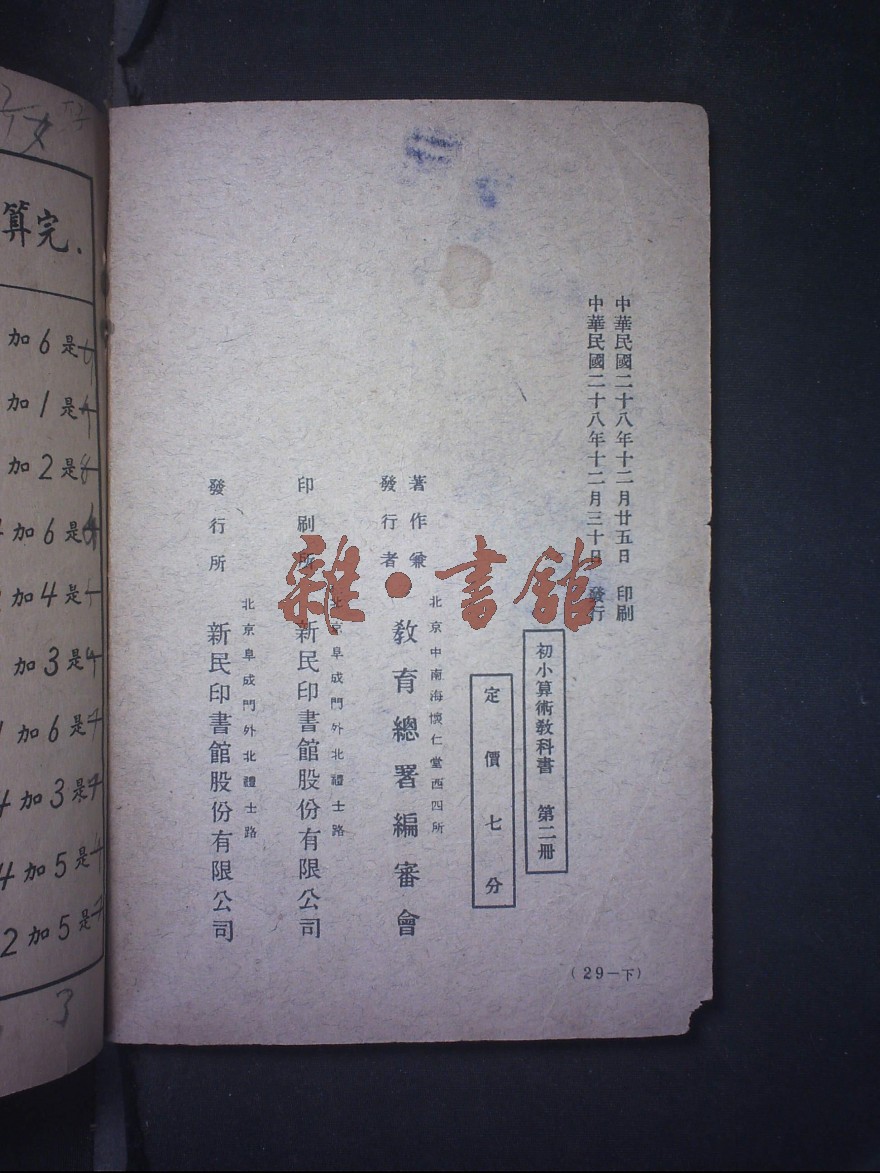 中華民國二十八年十二月廿五日 印刷
中華民國二十八年十二月三十日 發行
初小算術教科書 第二冊
定價七分
著作兼
發行者
北京中南海懷仁堂西四所
教育總署編審會
印刷所
北京阜成門外北禮士路
新民印書館股份有限公司
發行所
北京阜成門外北禮士路
新民印書館股份有限公司
(29—下)
雜·書館
算完.
加6是
加1是
加2是8
加6是
加4是
加3是
加6是
4加3是
4加5是
2加5是
3